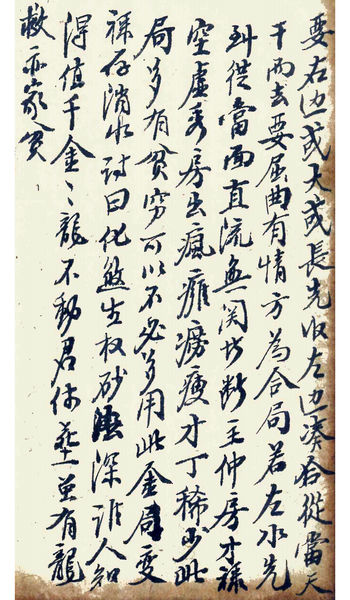 要右边或大或長先收左边凑合從當天
干而去要屈曲有情方為合局若左水先
到從當面直流無関者斷主仲房才祿
空虛秀房出瘋癱癆瘦才丁稀少此
局多有貧穷可以不必多用此金局变
祿存消水詩曰化煞生权砂法深誰人知
得值千金〻龍不動君休葬並有龍
救亦家贫